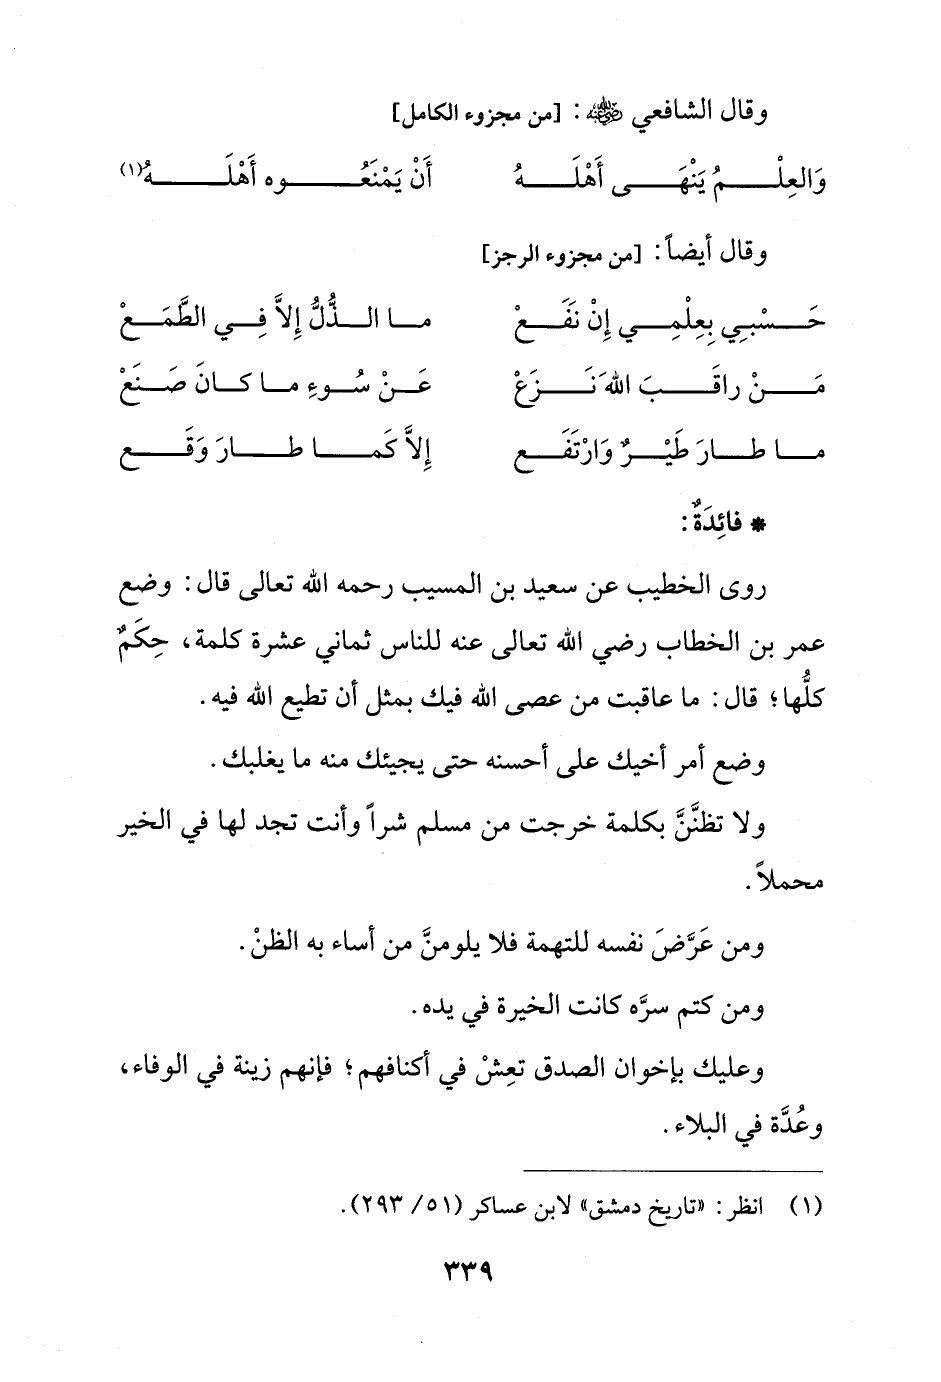 وقال الشافعي ﵁: [من مجزوء الكامل]
وَالعِلْـمُ يَنْهَـى أَهْلَـهُ أَنْ يَمْنَعُـوه أَهْلَـهُ(١)
وقال أيضاً: [من مجزوء الرجز]
حَسْبِي بِعِلْمِي إِنْ نَفَعْ ما الذُّلُّ إِلاَّ فِي الطَّمَعْ
مَنْ راقَبَ اللهَ نَزَعْ عَنْ سُوءِ ما كانَ صَنَعْ
ما طارَ طَيْرٌ وَارْتَفَع إِلاَّ كَما طارَ وَقَع
* فائِدَةٌ:
روى الخطيب عن سعيد بن المسيب رحمه الله تعالى قال: وضع
عمر بن الخطاب رضي الله تعالى عنه للناس ثماني عشرة كلمة، حِكَمٌ
كلُّها؛ قال: ما عاقبت من عصى الله فيك بمثل أن تطيع الله فيه.
وضع أمر أخيك على أحسنه حتى يجيئك منه ما يغلبك.
ولا تظنَّنَّ بكلمة خرجت من مسلم شراً وأنت تجد لها في الخير
محملاً.
ومن عَرَّضَ نفسه للتهمة فلا يلومنَّ من أساء به الظنْ.
ومن كتم سرَّه كانت الخيرة في يده.
وعليك بإخوان الصدق تعِشْ في أكنافهم؛ فإنهم زينة في الوفاء،
وعُدَّة في البلاء.
(١) انظر: «تاريخ دمشق» لابن عساكر (٥١/ ٢٩٣).
٣٣٩